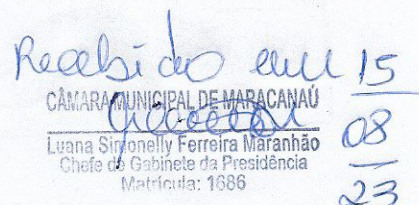 Recebido em 15
CÂMARA MUNICIPAL DE MARACANAÚ
08
Luana Simonelly Ferreira Maranhão
Chefe de Gabinete da Presidência
Matrícula: 1686
23